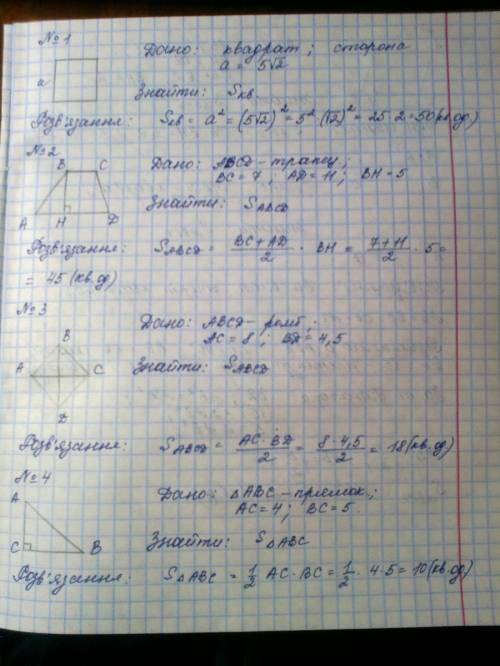 №1
Дано: квадрат; сторона
a
a = 5√2
Знайти: Sкв.
Розв'язання: Sкв = a² = (5√2)² = 5² · (√2)² = 25 · 2 = 50 (кв.од)
№2
B C
Дано: ABCD – трапец.;
BC = 7; AD = 11; BH = 5
Знайти: S ABCD
A H D
Розв'язання: S ABCD = (BC + AD)/2 · BH = (7 + 11)/2 · 5 =
= 45 (кв.од)
№3
Дано: ABCD – ромб;
B
AC = 8; BD = 4,5
A C
Знайти: S ABCD
D
Розв'язання: S ABCD = (AC · BD)/2 = (8 · 4,5)/2 = 18 (кв.од)
№4
A
Дано: △ABC – прямок.;
AC = 4; BC = 5.
Знайти: S △ABC
C B
Розв'язання: S △ABC = 1/2 AC · BC = 1/2 · 4 · 5 = 10 (кв.од)